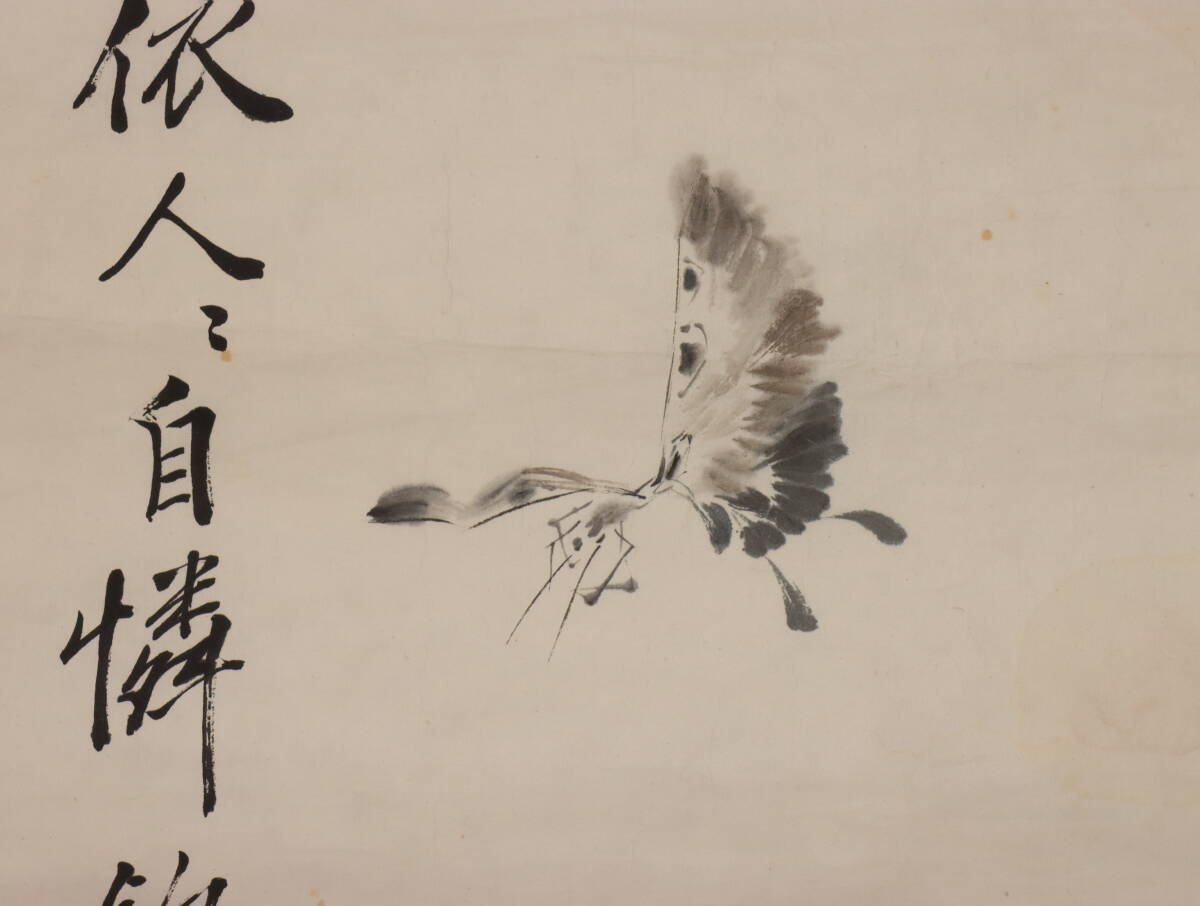 依人〻自憐